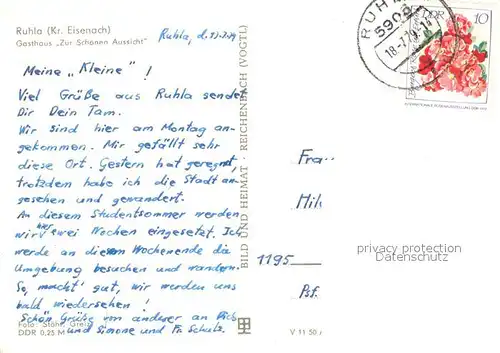 Ruhla (Kr. Eisenach)
Gasthaus „Zur Schönen Aussicht"
Ruhla, d.
Meine „Kleine"!
Viel Grüße aus Ruhla sendet
Dir Dein Tam.
Wir sind hier am Montag an-
gekommen. Mir gefällt sehr
diese Ort. Gestern hat geregnet,
trotzdem habe ich die Stadt an-
gesehen und gewandert.
An diesem Studentsommer werden
wir hier zwei Wochen eingesetzt. Ich
werde an diesem Wochenende die
Umgebung besuchen und wandern.
So, macht' gut, wir werden uns
bald wiedersehen!
Schön Grüße von anderer an Dich
und Simone und Fr. Schulz.
Foto: Stöhr, Greiz
DDR 0,25 M
BILD UND HEIMAT · REICHENBACH (VOGTL)
V 11 50
RUHLA
5909
18.-7.79.-14
DDR 10
Frau
1195
Psf.
privacy protection
Datenschutz